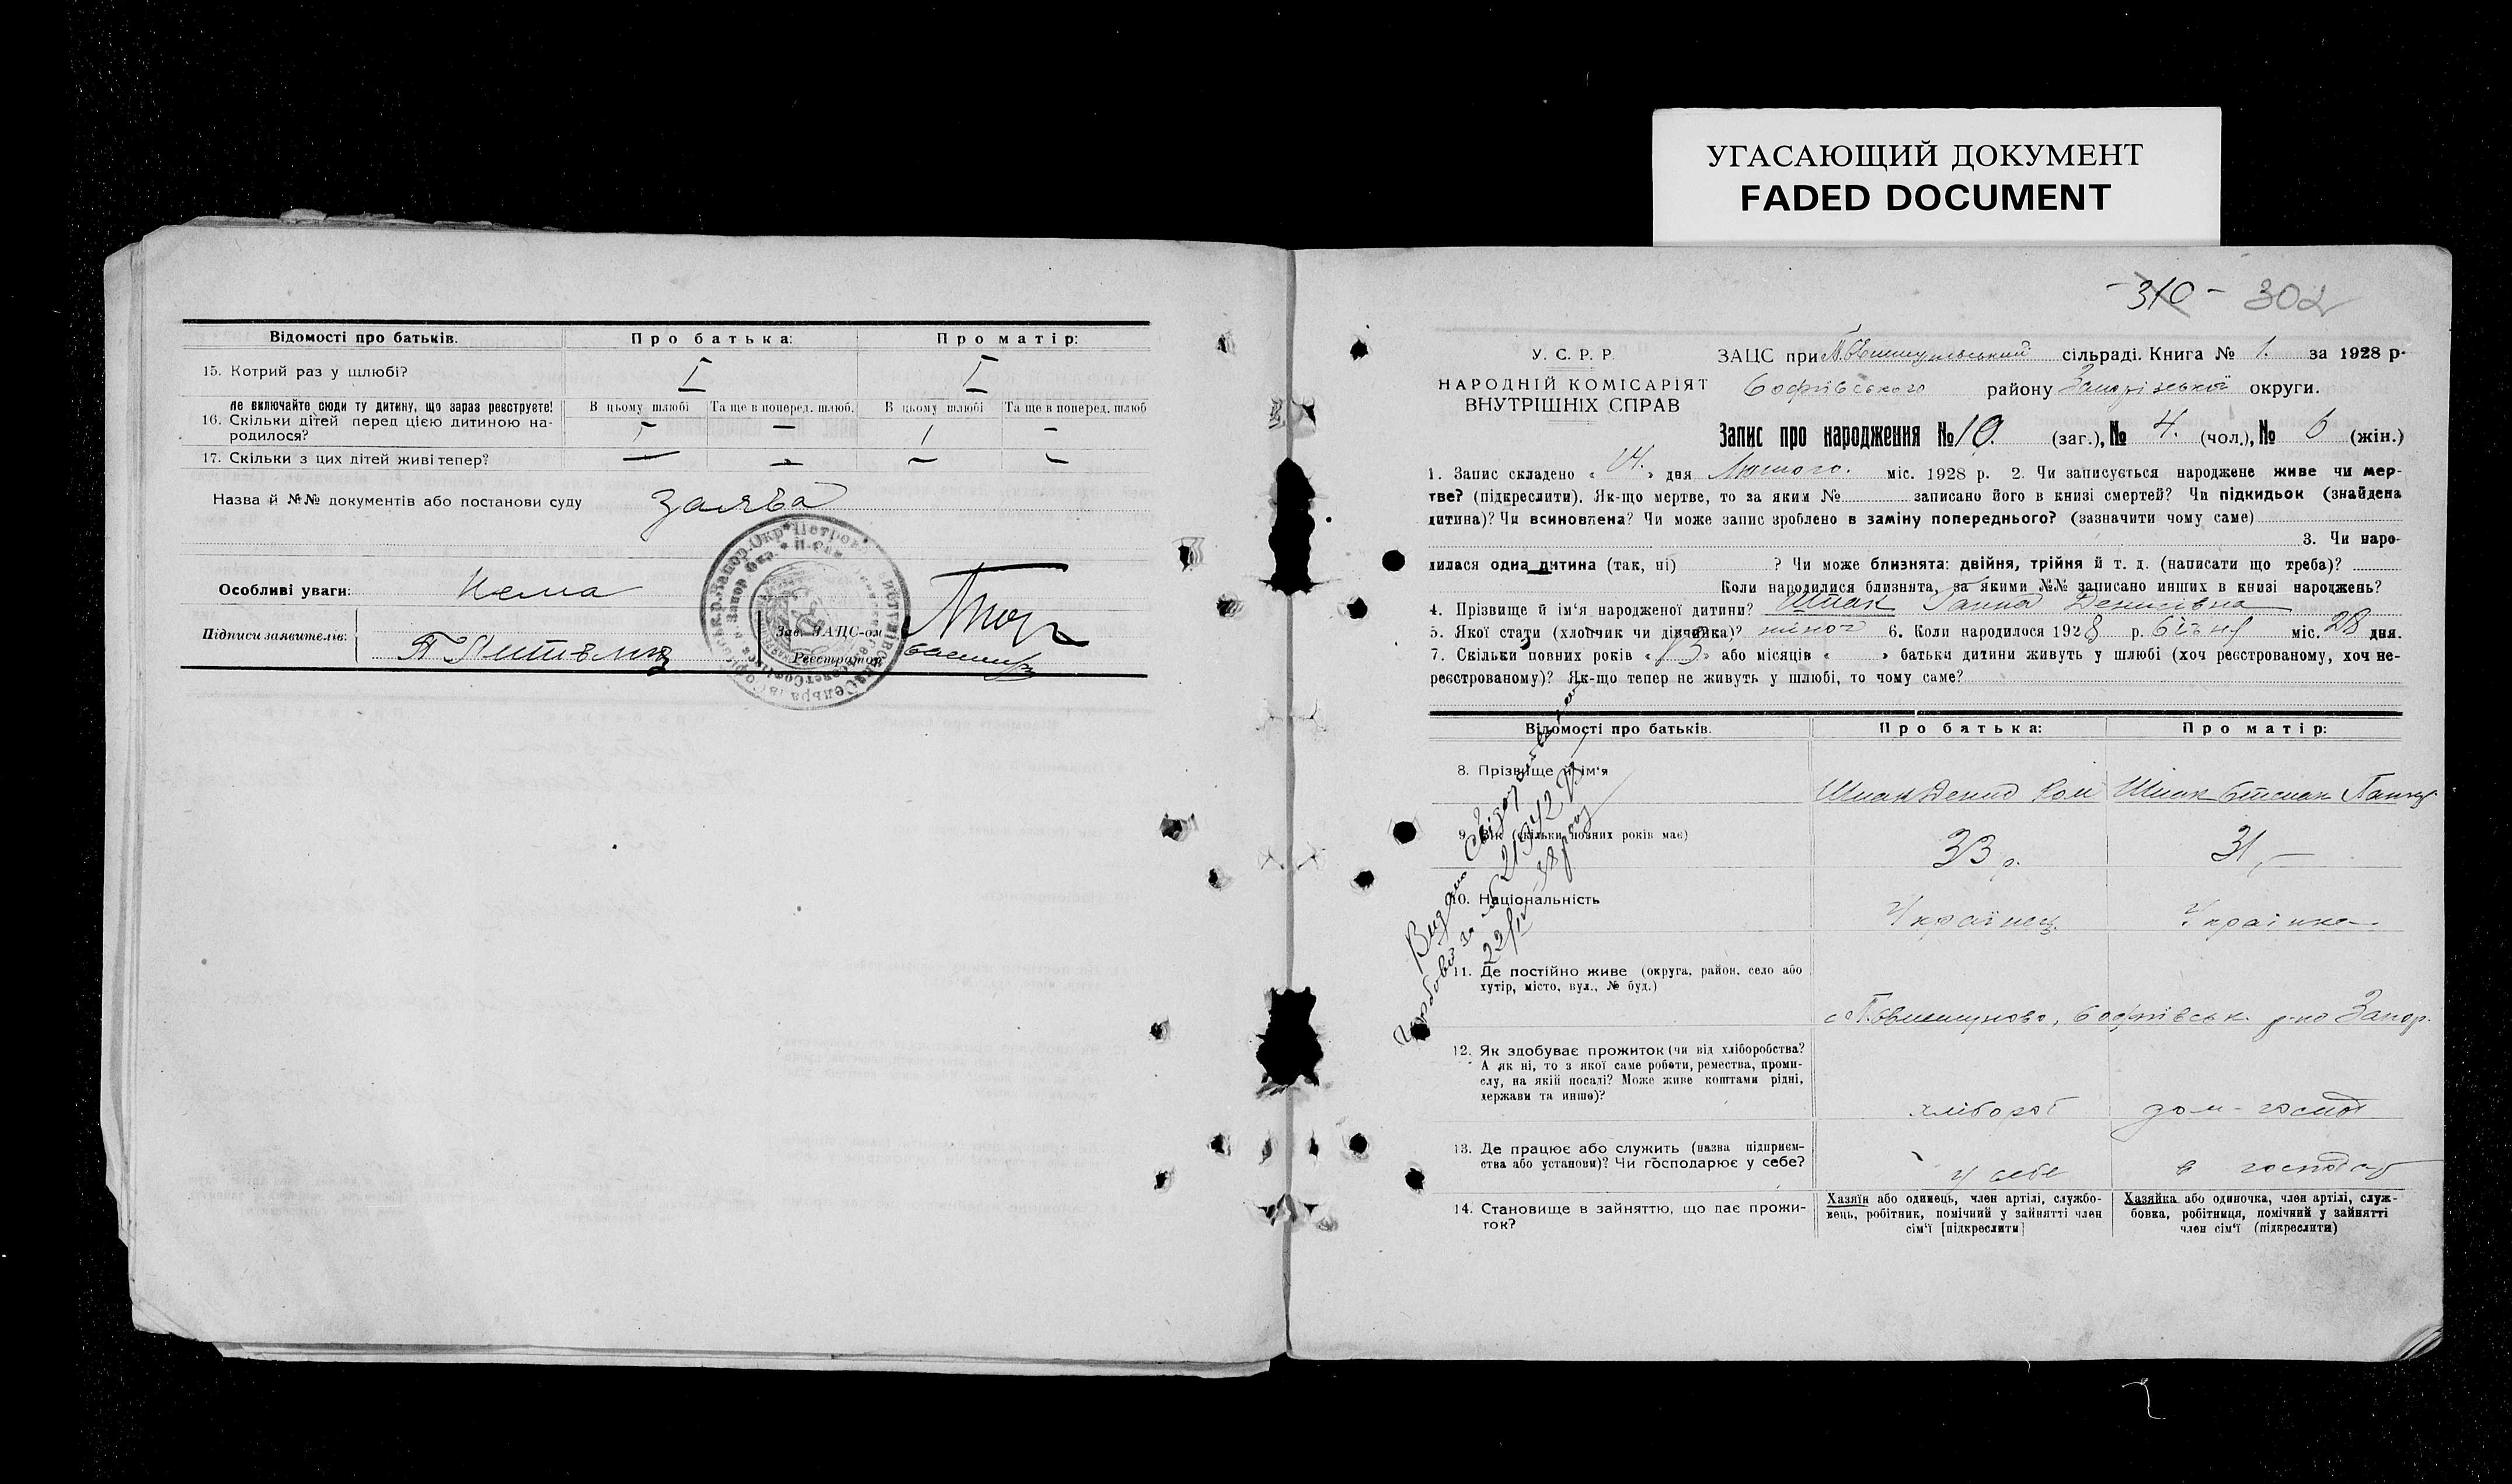 УГАСАЮЩИЙ ДОКУМЕНТ
FADED DOCUMENT
Відомості про батьків. Про батька: Про матір:
15. Котрий раз у шлюбі? I I
Не включайте сюди ту дитину, що зараз реєструєте! В цьому шлюбі Та ще в поперед. шлюб. В цьому шлюбі Та ще в поперед. шлюб
16. Скільки дітей перед цією дитиною на- 1 — 1 —
родилося?
17. Скільки з цих дітей живі тепер? — — — —
Назва й №№ документів або постанови суду заява
Особливі уваги: Нема
Підписи заявителів: Зав. ЗАЦС-ом
Реєстратор
-310- 302
У. С. Р. Р.
НАРОДНІЙ КОМІСАРІЯТ
ВНУТРІШНІХ СПРАВ
ЗАЦС при сільраді. Книга № 1. за 1928 р.
Софіївського району Запорізької округи.
Запис про народження № 10. (заг.), № 4. (чол.), № 6 (жін.)
1. Запис складено « 14. » дня Лютого. міс. 1928 р. 2. Чи записується народжене живе чи мер-
тве? (підкреслити). Як-що мертве, то за яким № записано його в книзі смертей? Чи підкидьок (знайдена
дитина)? Чи всиновлена? Чи може запис зроблено в заміну попереднього? (зазначити чому саме)
3. Чи наро-
дилася одна дитина (так, ні) ? Чи може близнята: двійня, трійня й т. д. (написати що треба)?
Коли народилися близнята, за якими №№ записано инших в книзі народжень?
4. Прізвище й ім‘я народженої дитини? Шпак Ганна Денисівна
5. Якої стати (хлопчик чи дівчинка)? жіноч 6. Коли народилося 1928 р. Січня міс. 28 дня.
7. Скільки повних років « 13 » або місяців « » батьки дитини живуть у шлюбі (хоч реєстрованому, хоч не-
реєстрованому)? Як-що тепер не живуть у шлюбі, то чому саме?
Відомості про батьків. Про батька: Про матір:
8. Прізвище й ім‘я
Шпак Денис Шпак
9. Вік (скільки повних років має)
33 р. 31
10. Національність
Українец. Українка
11. Де постійно живе (округа, район, село або
хутір, місто, вул., № буд.)
Софіївськ. р-но Запор.
12. Як здобуває прожиток (чи від хліборобства?
А як ні, то з якої саме роботи, ремества, проми-
слу, на якій посаді? Може живе коштами рідні,
держави та инше)?
хлібороб дом-госпо
13. Де працює або служить (назва підприєм-
ства або установи)? Чи господарює у себе?
у себе в
14. Становище в зайняттю, що дає прожи-
ток?
Хазяїн або одинець, член артілі, службо-
вець, робітник, помічний у зайнятті член
сім‘ї [підкреслити]
Хазяйка або одиночка, член артілі, служ-
бовка, робітниця, помічний у зайнятті
член сім‘ї (підкреслити)
Видано